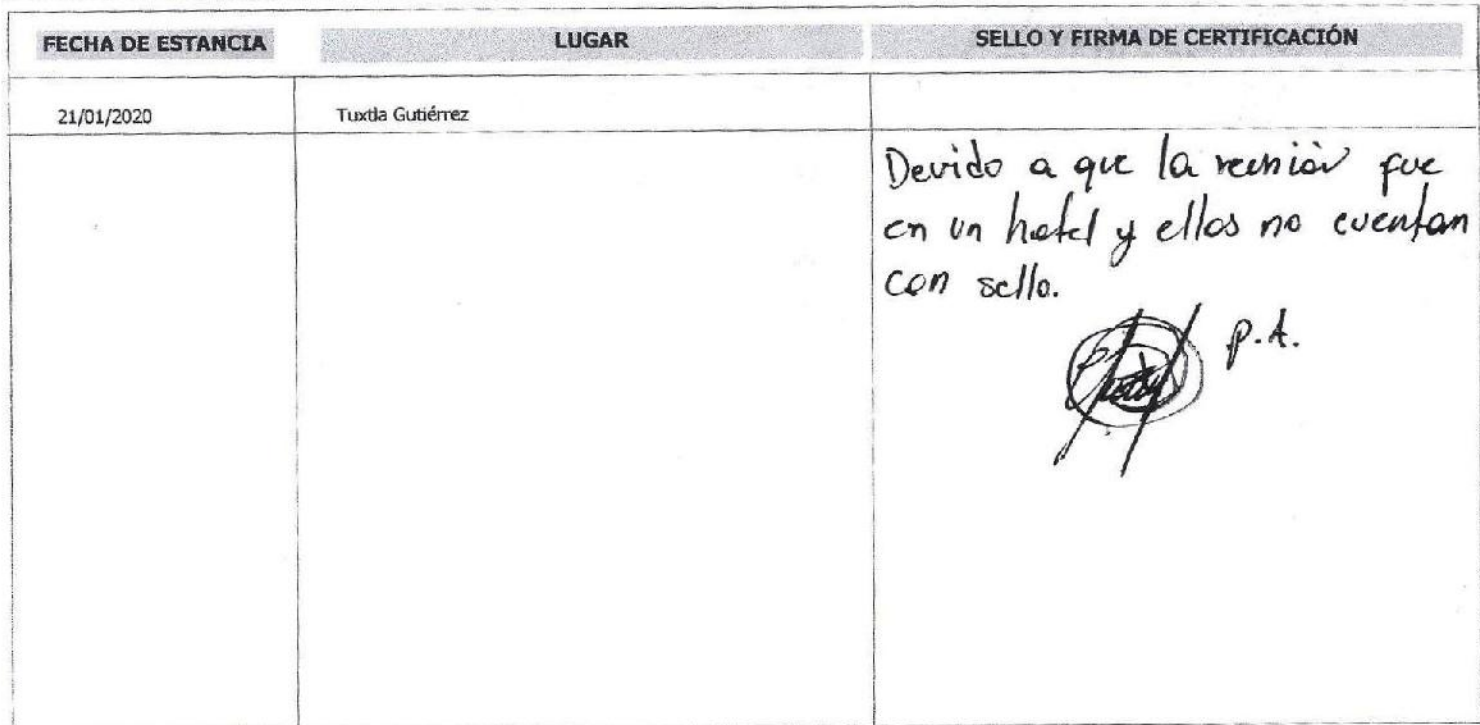 FECHA DE ESTANCIA LUGAR SELLO Y FIRMA DE CERTIFICACIÓN
21/01/2020 Tuxtla Gutiérrez
Devido a que la reunión fue
en un hotel y ellos no cuentan
con sello.
P.A.